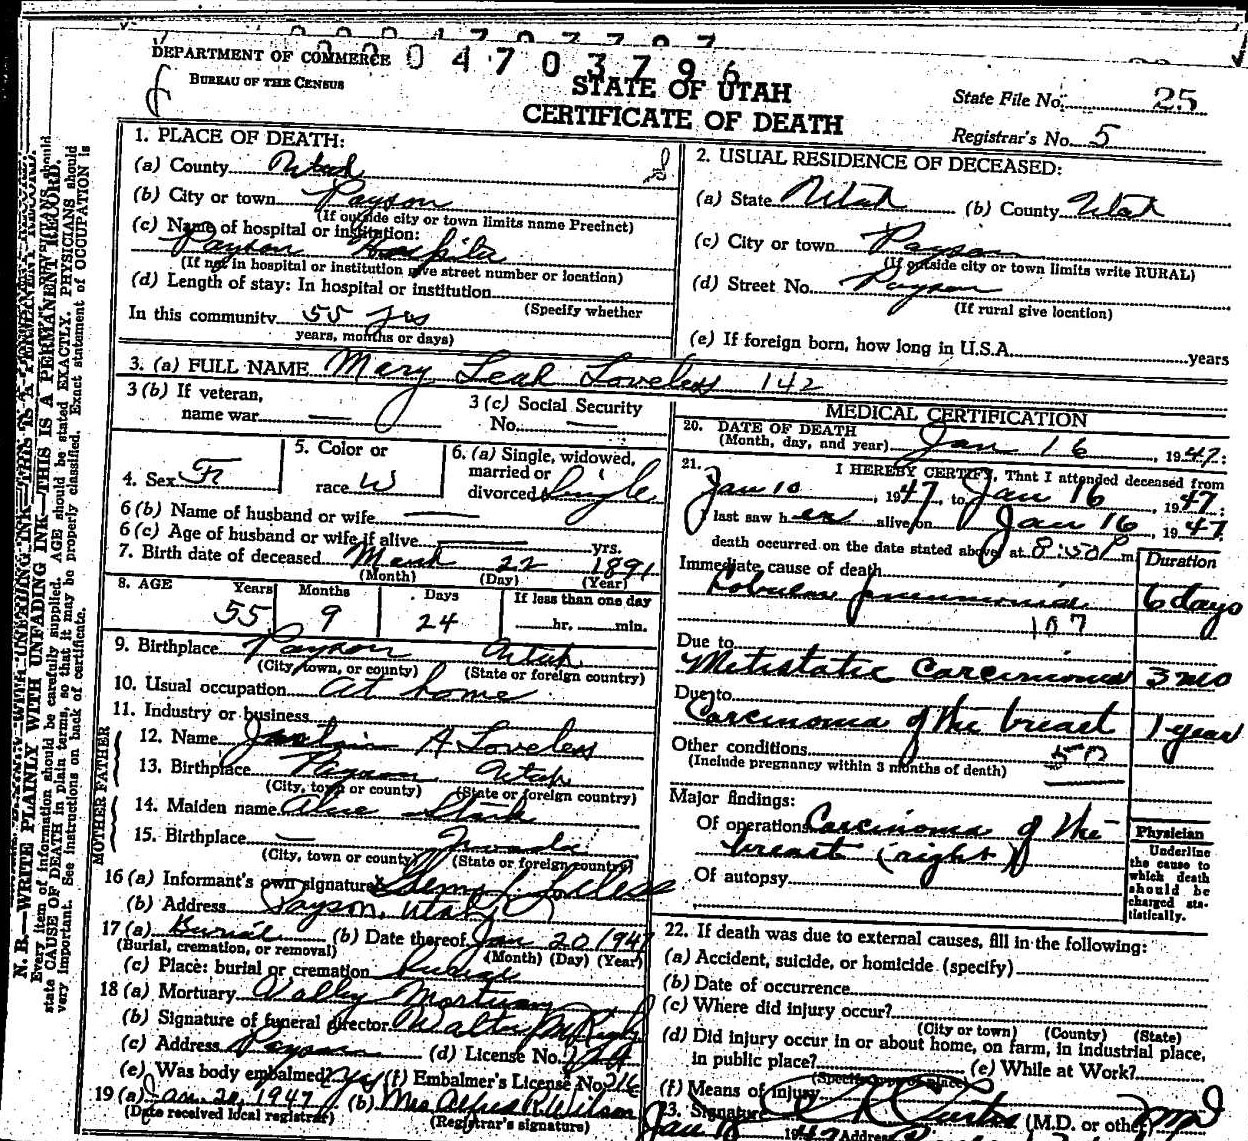 DEPARTMENT OF COMMERCE
BUREAU OF THE CENSUS
04703796
STATE OF UTAH
CERTIFICATE OF DEATH
State File No. 25
Registrar's No. 5
1. PLACE OF DEATH:
(a) County Utah
(b) City or town Payson
(If outside city or town limits name Precinct)
(c) Name of hospital or institution:
Payson Hospital
(If not in hospital or institution give street number or location)
(d) Length of stay: In hospital or institution
(Specify whether
In this community 55 yrs
years, months or days)
2. USUAL RESIDENCE OF DECEASED:
(a) State Utah (b) County Utah
(c) City or town Payson
(If outside city or town limits write RURAL)
(d) Street No. Payson
(If rural give location)
(e) If foreign born, how long in U.S.A. years
3. (a) FULL NAME Mary Leah Loveless 142
3 (b) If veteran,
name war —
3 (c) Social Security
No. —
4. Sex F
5. Color or
race W
6. (a) Single, widowed,
married or
divorced Single
6 (b) Name of husband or wife —
6 (c) Age of husband or wife if alive yrs.
7. Birth date of deceased March 22 1891
(Month) (Day) (Year)
8. AGE Years Months Days If less than one day
55 9 24 hr. min.
9. Birthplace Payson Utah
(City, town, or county) (State or foreign country)
10. Usual occupation At home
11. Industry or business
FATHER
12. Name A Loveless
13. Birthplace Payson Utah
(City, town or county) (State or foreign country)
MOTHER
14. Maiden name Alice Stark
15. Birthplace —
(City, town or county) (State or foreign country)
16 (a) Informant's own signature Loveless
(b) Address Payson, Utah
17 (a) Burial (b) Date thereof Jan 20 1947
(Burial, cremation, or removal) (Month) (Day) (Year)
(c) Place: burial or cremation
18 (a) Mortuary Valley Mortuary
(b) Signature of funeral director Walter
(c) Address Payson (d) License No.
(e) Was body embalmed? yes (f) Embalmer's License No. 216
19 (a) Jan. 20, 1947 (b) Mrs Alfred R. Wilson
(Date received local registrar) (Registrar's signature)
MEDICAL CERTIFICATION
20. DATE OF DEATH
(Month, day, and year) Jan 16, 1947:
21. I HEREBY CERTIFY, That I attended deceased from
Jan 10, 1947, to Jan 16 1947;
I last saw her alive on Jan 16, 1947
death occurred on the date stated above, at 8:50 P m.
Duration
Immediate cause of death
Lobular pneumonia 6 days
107
Due to
Metistatic Carcinoma 3 mo
Due to
Carcinoma of the breast 1 year
Other conditions 50
(Include pregnancy within 3 months of death)
Major findings:
Of operations Carcinoma of the
breast (right)
Of autopsy
Physician
Underline
the cause to
which death
should be
charged sta-
tistically.
22. If death was due to external causes, fill in the following:
(a) Accident, suicide, or homicide (specify)
(b) Date of occurrence
(c) Where did injury occur?
(City or town) (County) (State)
(d) Did injury occur in or about home, on farm, in industrial place,
in public place? (e) While at Work?
(Specify type of place)
(f) Means of injury
23. Signature Curtis (M.D. or other) MD
Jan 18 1947 Address
N. B.—WRITE PLAINLY WITH UNFADING INK—THIS IS A PERMANENT RECORD.
Every item of information should be carefully supplied. AGE should be stated EXACTLY. PHYSICIANS should
state CAUSE OF DEATH in plain terms, so that it may be properly classified. Exact statement of OCCUPATION is
very important. See instructions on back of certificate.